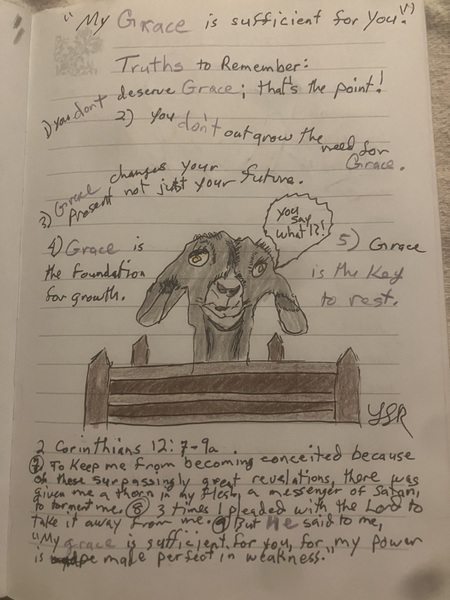 "My Grace is sufficient for you."
Truths to Remember:
1) you don't deserve Grace; that's the point!
2) you don't outgrow the need for Grace.
3) Grace changes your present not just your future.
4) Grace is
the foundation
for growth.
you say what!?!
5) Grace
is the Key
to rest.
YSR
2 Corinthians 12:7-9a.
⑦ To Keep me from becoming conceited because
of these surpassingly great revelations, there was
given me a thorn in my flesh, a messenger of Satan,
to torment me. ⑧ 3 times I pleaded with the Lord to
take it away from me. ⑨ But He said to me,
"My grace is sufficient for you, for my power
is made perfect in weakness."